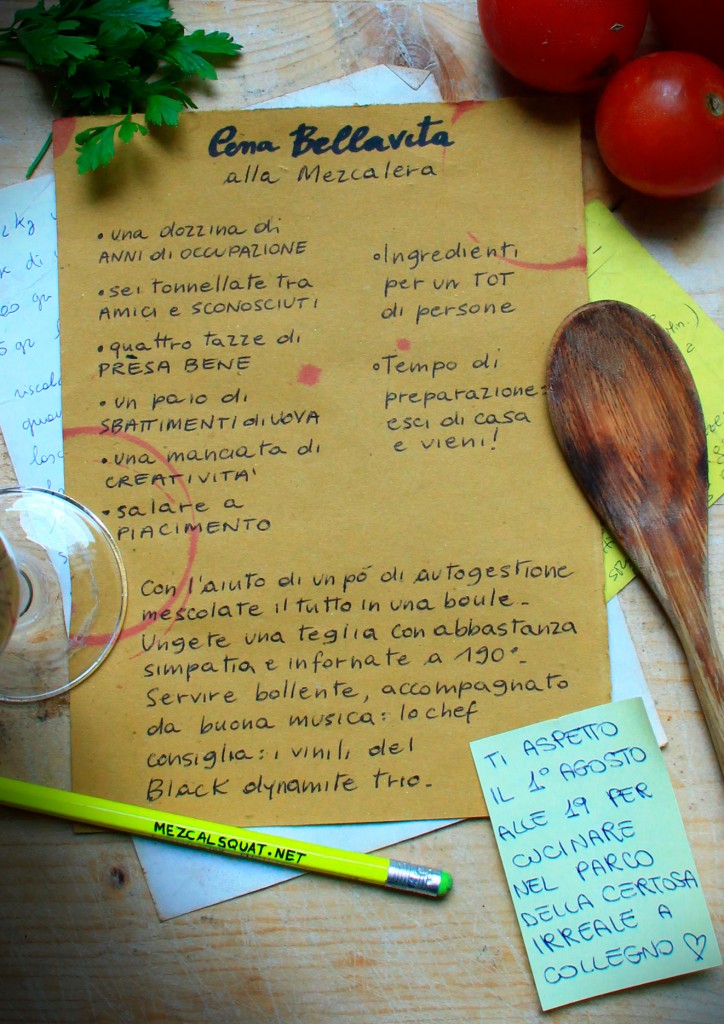 Cena Bellavita
alla Mezcalera
• una dozzina di
ANNI di OCCUPAZIONE
• sei tonnellate tra
AMICI e SCONOSCIUTI
• quattro tazze di
PRESA BENE
• un paio di
SBATTIMENTI di UOVA
• una manciata di
CREATIVITA'
• salare a
PIACIMENTO
• Ingredienti
per un TOT
di persone
• Tempo di
preparazione:
esci di casa
e vieni!
Con l'aiuto di un pó di autogestione
mescolate il tutto in una boule.
Ungete una teglia con abbastanza
simpatia e infornate a 190°.
Servire bollente, accompagnato
da buona musica: lo chef
consiglia: i vinili del
Black dynamite trio.
MEZCALSQUAT.NET
TI ASPETTO
IL 1° AGOSTO
ALLE 19 PER
CUCINARE
NEL PARCO
DELLA CERTOSA
IRREALE A
COLLEGNO ♡